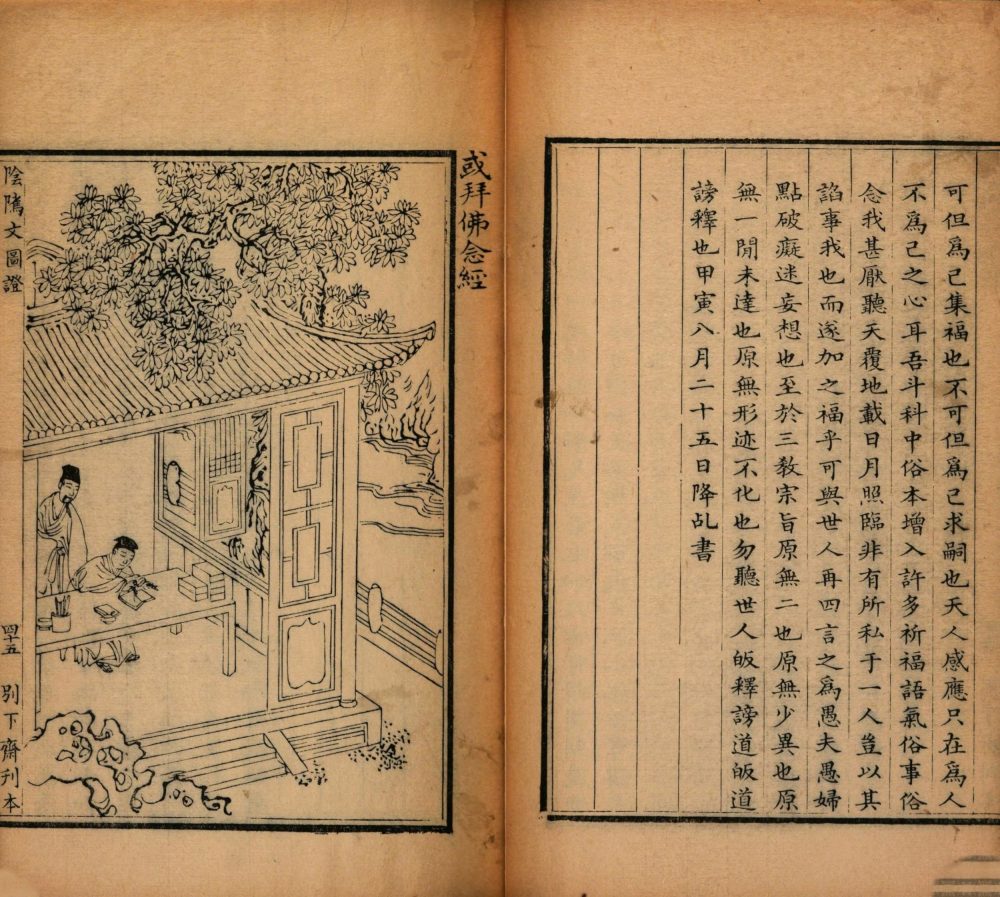 可但爲己集福也不可但爲己求嗣也天人感應只在爲人
不爲己之心耳吾斗科中俗本增入許多祈福語氣俗事俗
念我甚厭聽天覆地載日月照臨非有所私于一人豈以其
諂事我也而遂加之福乎可與世人再四言之爲愚夫愚婦
點破癡迷妄想也至於三教宗旨原無二也原無少異也原
無一閒未達也原無形迹不化也勿聽世人皈釋謗道皈道
謗釋也甲寅八月二十五日降乩書
或拜佛念經
陰隲文圖證
四十五
別下齋刊本